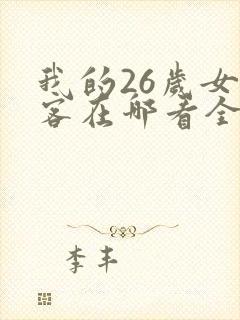 我的26岁女
客在哪看全
李丰